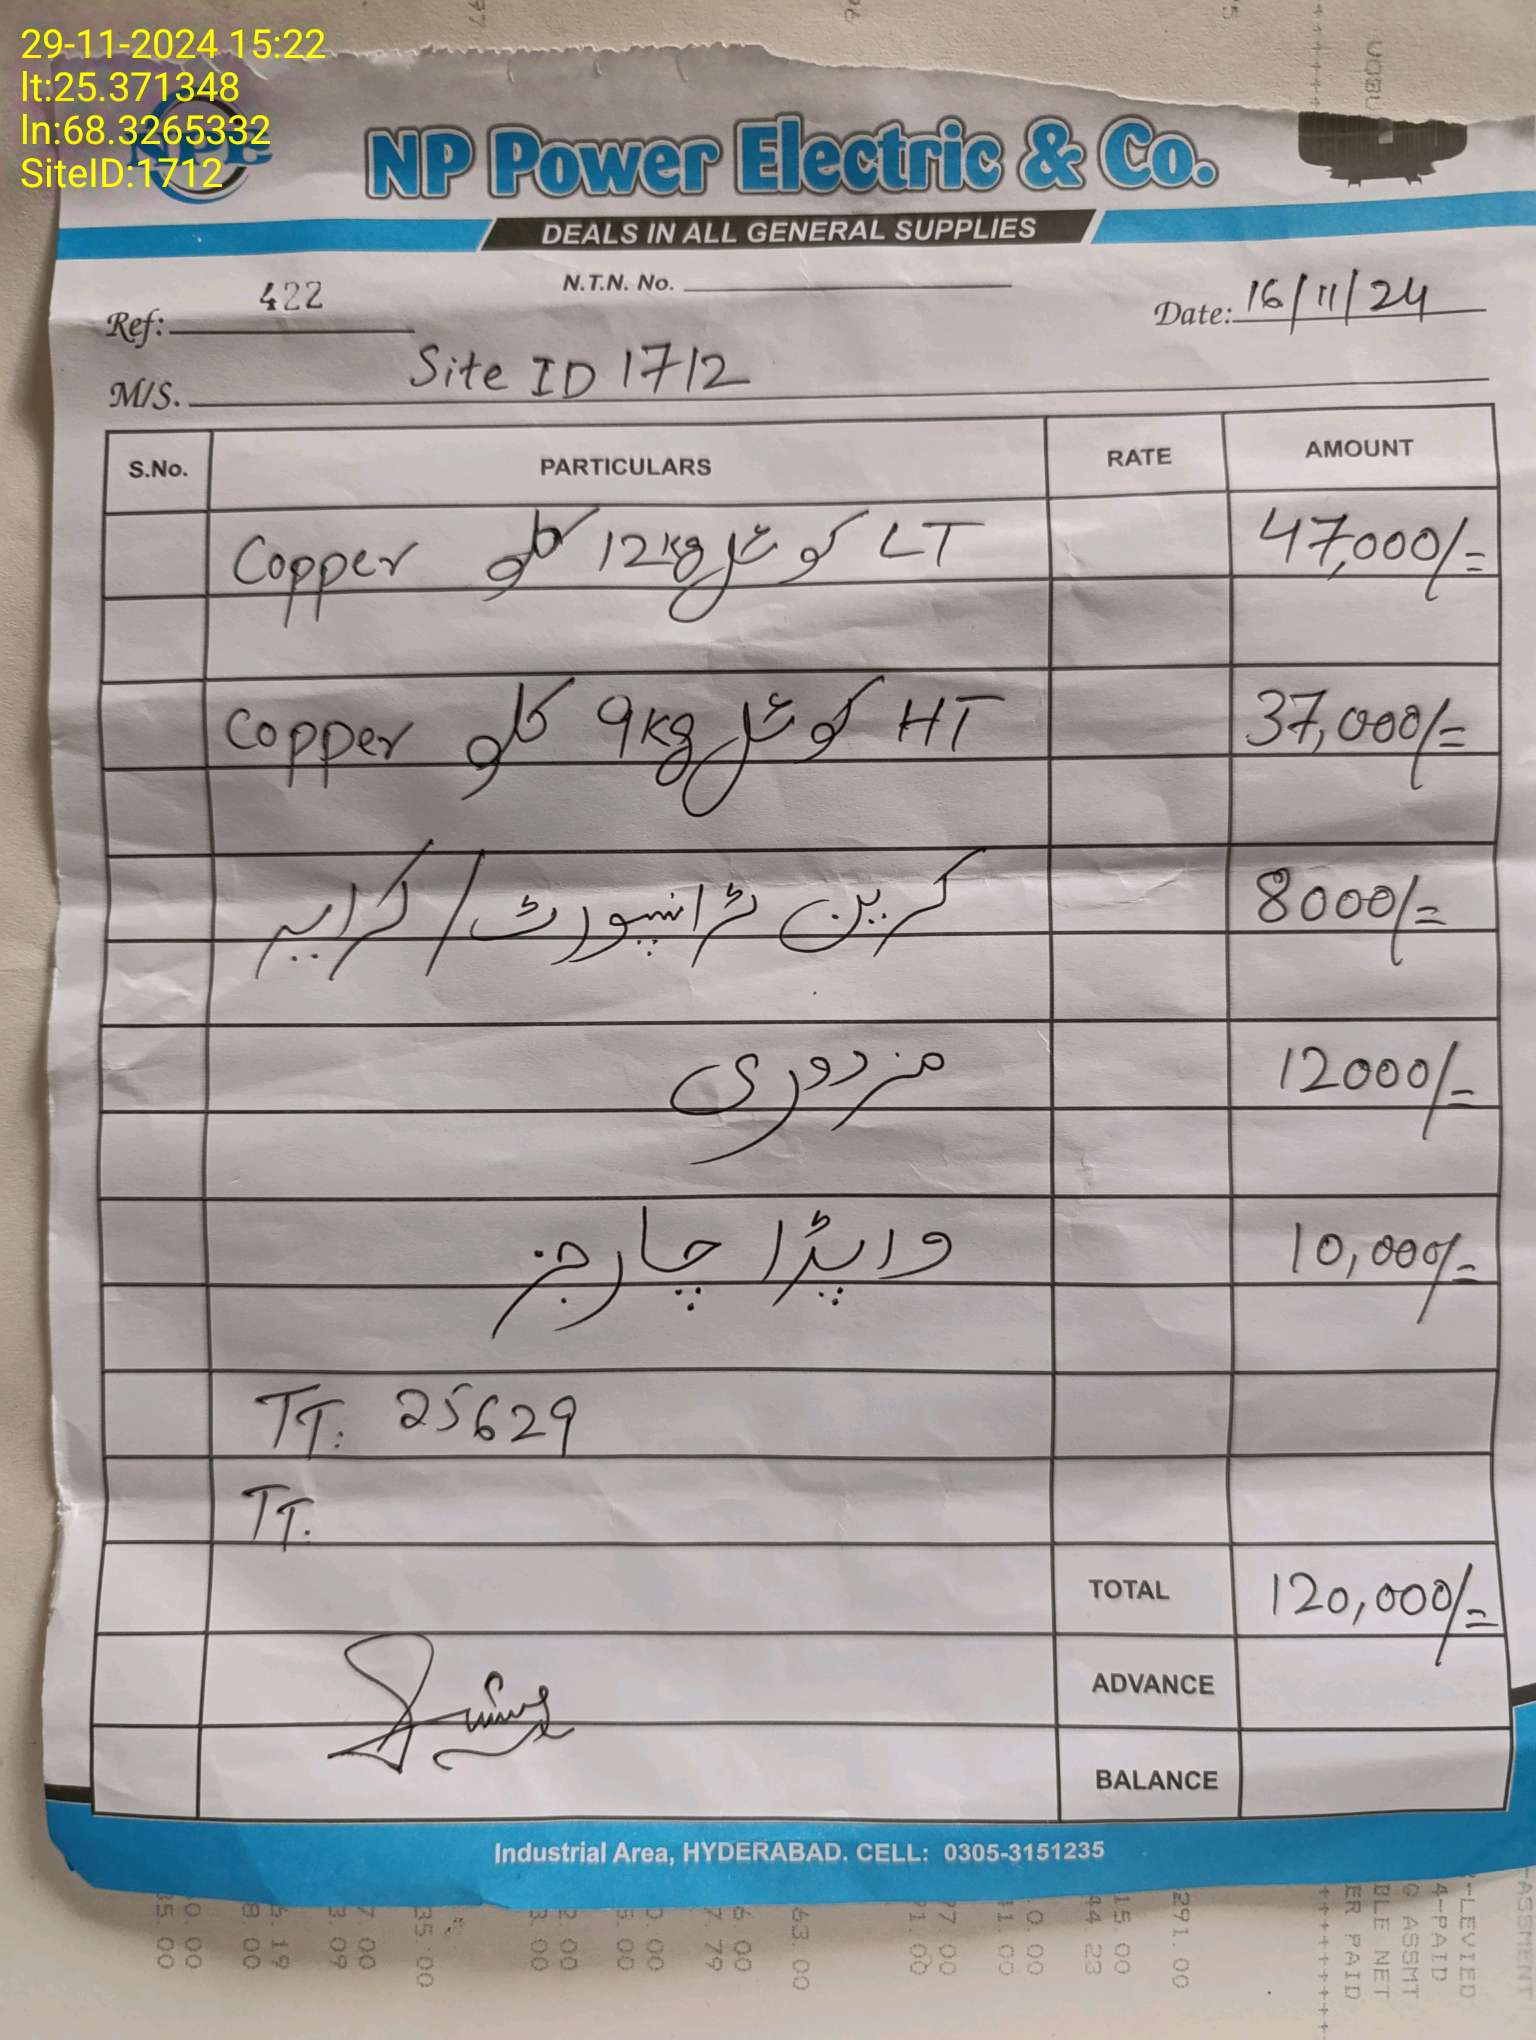 29-11-2024 15:22
lt:25.371348
ln:68.3265332
SiteID:1712
NPE
NP Power Electric & Co.
DEALS IN ALL GENERAL SUPPLIES
Ref: 422
N.T.N. No.
Date: 16/11/24
M/S. Site ID 1712
S.No. PARTICULARS RATE AMOUNT
LT کوئل 12kg کلو Copper 47,000/=
HT کوئل 9kg کلو Copper 37,000/=
کرین ٹرانسپورٹ / کرایہ 8000/=
مزدوری 12000/=
واپڈا چارجز 10,000/=
TT: 25629
TT.
TOTAL 120,000/=
ADVANCE
BALANCE
Industrial Area, HYDERABAD. CELL: 0305-3151235